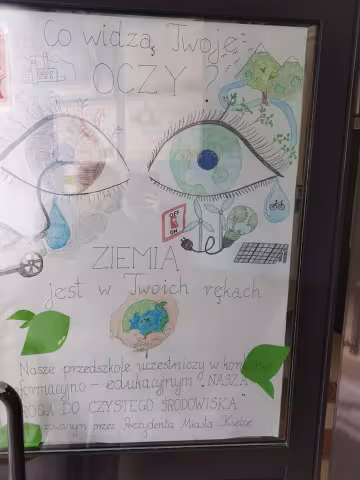 Co widzą Twoje
OCZY?
OFF
ON
ZIEMIA
jest w Twoich rękach
Nasze przedszkole uczestniczy w
formacyjno - edukacyjnym "NASZA
DO CZYSTEGO ŚRODOWISKA"
przez Prezydenta Miasta Kielce